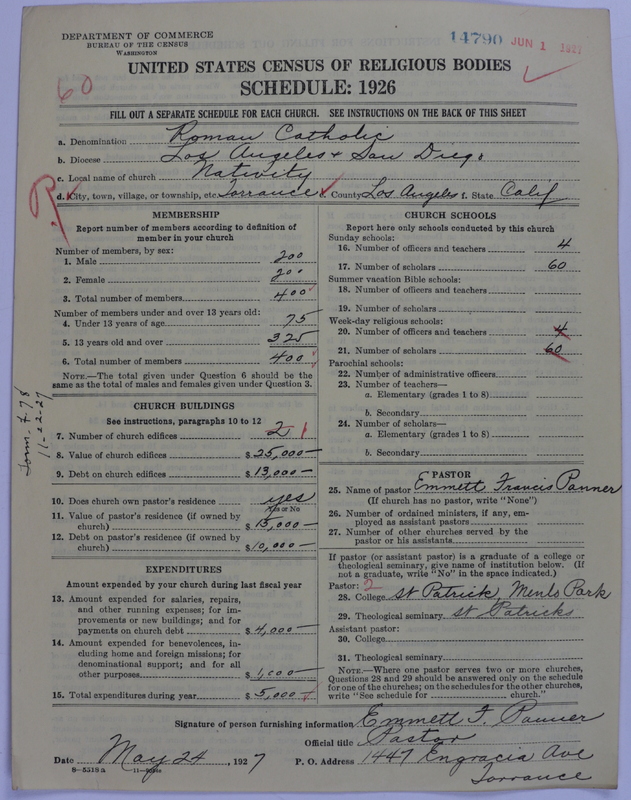 DEPARTMENT OF COMMERCE
BUREAU OF THE CENSUS
WASHINGTON
14790 JUN 1 192
60
UNITED STATES CENSUS OF RELIGIOUS BODIES
SCHEDULE: 1926
FILL OUT A SEPARATE SCHEDULE FOR EACH CHURCH. SEE INSTRUCTIONS ON THE BACK OF THIS SHEET
a. Denomination Roman Catholic
b. Diocese Los Angeles & San Diego
c. Local name of church Nativity
d. City, town, village, or township, etc. Torrance e. County Los Angeles f. State Calif
MEMBERSHIP
Report number of members according to definition of
member in your church
Number of members, by sex:
1. Male 200
2. Female 200
3. Total number of members 400
Number of members under and over 13 years old:
4. Under 13 years of age 75
5. 13 years old and over 325
6. Total number of members 400
NOTE.—The total given under Question 6 should be the
same as the total of males and females given under Question 3.
CHURCH BUILDINGS
See instructions, paragraphs 10 to 12
7. Number of church edifices 2 1
8. Value of church edifices $25,000
9. Debt on church edifices $13,000
10. Does church own pastor's residence yes
Yes or No
11. Value of pastor's residence (if owned by
church) $15,000
12. Debt on pastor's residence (if owned by
church) $10,000
EXPENDITURES
Amount expended by your church during last fiscal year
13. Amount expended for salaries, repairs,
and other running expenses; for im-
provements or new buildings; and for
payments on church debt $4,000
14. Amount expended for benevolences, in-
cluding home and foreign missions; for
denominational support; and for all
other purposes $1,000
15. Total expenditures during year $5,000
CHURCH SCHOOLS
Report here only schools conducted by this church
Sunday schools:
16. Number of officers and teachers 4
17. Number of scholars 60
Summer vacation Bible schools:
18. Number of officers and teachers
19. Number of scholars
Week-day religious schools:
20. Number of officers and teachers 4
21. Number of scholars 60
Parochial schools:
22. Number of administrative officers
23. Number of teachers—
a. Elementary (grades 1 to 8)
b. Secondary
24. Number of scholars—
a. Elementary (grades 1 to 8)
b. Secondary
PASTOR
25. Name of pastor Emmett Francis Panner
(If church has no pastor, write "None")
26. Number of ordained ministers, if any, em-
ployed as assistant pastors
27. Number of other churches served by the
pastor or his assistants
If pastor (or assistant pastor) is a graduate of a college or
theological seminary, give name of institution below. (If
not a graduate, write "No" in the space indicated.)
Pastor: 2
28. College St Patrick, Menlo Park
29. Theological seminary St Patricks
Assistant pastor:
30. College
31. Theological seminary
NOTE.—Where one pastor serves two or more churches,
Questions 28 and 29 should be answered only on the schedule
for one of the churches; on the schedules for the other churches,
write "See schedule for church."
Signature of person furnishing information Emmett F. Panner
Official title Pastor
Date May 24, 1927 P. O. Address 1447 Engracia Ave
Torrance
8-5518 a
11-22-27